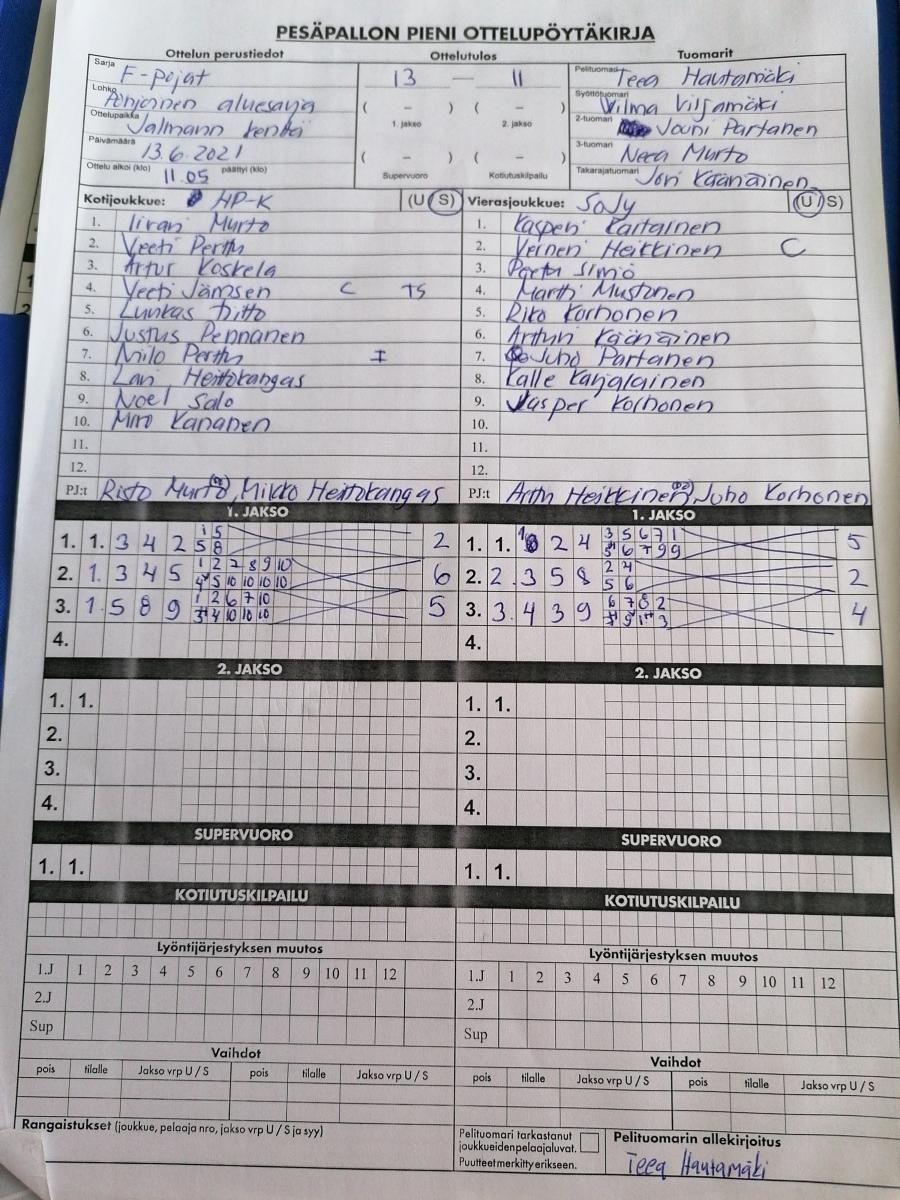 PESÄPALLON PIENI OTTELUPÖYTÄKIRJA
Ottelun perustiedot Ottelutulos Tuomarit
Sarja F-pojat 13 — 11 Pelituomari Teea Hautamäki
Lohko Pohjoinen aluesarja ( – ) ( – ) Syöttötuomari Vilma Viljamäki
Ottelupaikka Jalmann kenttä 1. jakso 2. jakso 2-tuomari Jouni Partanen
Päivämäärä 13.6.2021 ( – ) ( – ) 3-tuomari Neea Murto
Ottelu alkoi (klo) 11.05 päättyi (klo) Supervuoro Kotiutuskilpailu Takarajatuomari Joni Käänäinen
Kotijoukkue: HP-K (U/S) Vierasjoukkue: SoJy (U/S)
1. Iirari Murto 1. Kasperi Partainen
2. Veeti Perttu 2. Verneri Heikkinen C
3. Artur Koskela 3. Perttu Simo
4. Veeti Jämsen C TS 4. Martti Mustonen
5. Luukas Ditto 5. Riko Korhonen
6. Justus Pennanen 6. Artturi Käänäinen
7. Milo Perttu I 7. Juho Partanen
8. Lari Heitokangas 8. Kalle Karjalainen
9. Noel Salo 9. Jasper Korhonen
10. Miro Kananen 10.
11. 11.
12. 12.
PJ:t Risto Murto, Mikko Heitokangas PJ:t Arttu Heikkinen, Juho Korhonen
1. JAKSO 1. JAKSO
1. 1. 3 4 2 1 5 2 1. 1. 2 4 3 5 6 7 1 5
5 8 6 7 9 9
2. 1. 3 4 5 1 2 7 8 9 10 6 2. 2. 3 5 8 2 4 2
4 5 10 10 10 10 5 6
3. 1. 5 8 9 1 2 6 7 10 5 3. 3. 4 3 9 6 7 8 2 4
4 10 10 10
4. 4.
2. JAKSO 2. JAKSO
1. 1. 1. 1.
2. 2.
3. 3.
4. 4.
SUPERVUORO SUPERVUORO
1. 1. 1. 1.
KOTIUTUSKILPAILU KOTIUTUSKILPAILU
Lyöntijärjestyksen muutos Lyöntijärjestyksen muutos
1.J 1 2 3 4 5 6 7 8 9 10 11 12 1.J 1 2 3 4 5 6 7 8 9 10 11 12
2.J 2.J
Sup Sup
Vaihdot Vaihdot
pois tilalle Jakso vrp U / S pois tilalle Jakso vrp U / S pois tilalle Jakso vrp U / S pois tilalle Jakso vrp U / S
Rangaistukset (joukkue, pelaaja nro, jakso vrp U / S ja syy)
Pelituomari tarkastanut Pelituomarin allekirjoitus
joukkueidenpelaajaluvat.
Puutteetmerkittyerikseen. Teea Hautamäki